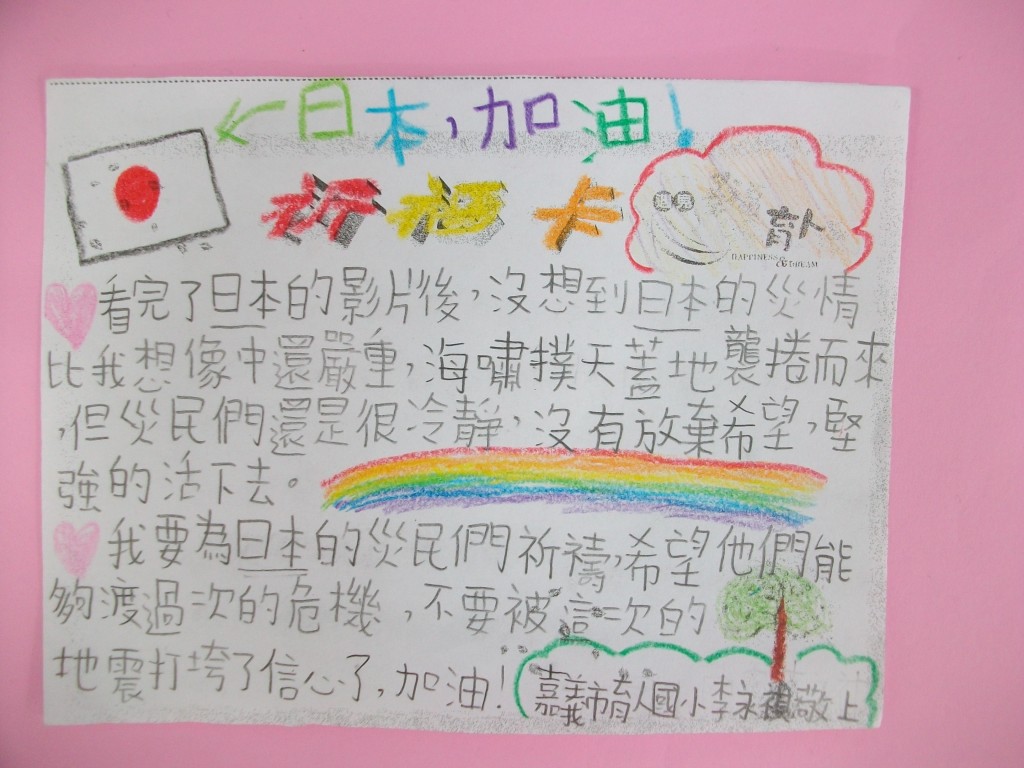 日本,加油!
祈福卡
遇見
育人
HAPPINESS & DREAM
看完了日本的影片後,沒想到日本的災情
比我想像中還嚴重,海嘯撲天蓋地襲捲而來
,但災民們還是很冷靜,沒有放棄希望,堅
強的活下去。
我要為日本的災民們祈禱,希望他們能
夠渡過次的危機,不要被次的
地震打垮了信心了,加油!
嘉義市育人國小李永敬上